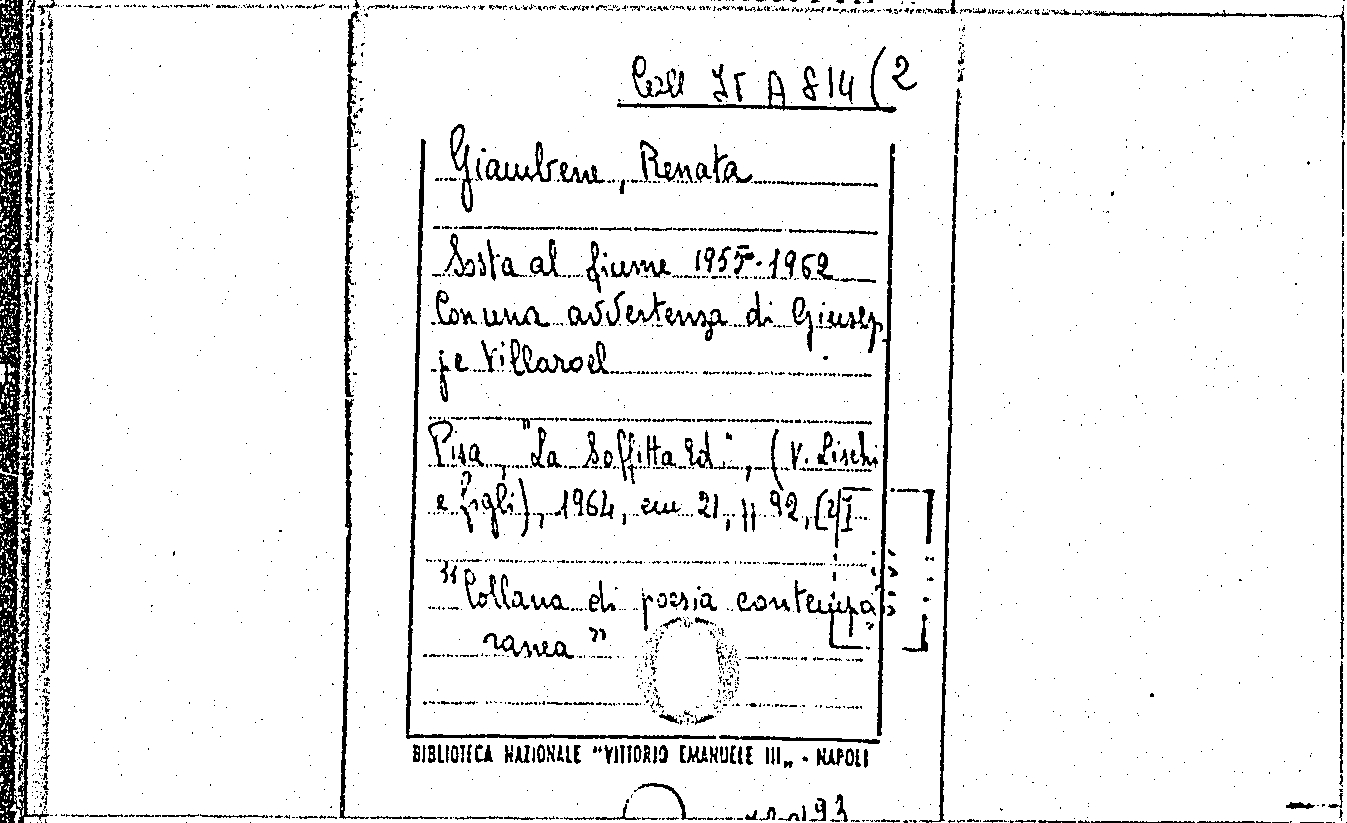 Coll It A 814 (2
Giambene, Renata
Sosta al fiume 1955-1962
Con una avvertenza di Giusep
pe Villaroel
Pisa, "La Soffitta Ed", (V. Lischi
e figli), 1964, cm 21, pp 92, (2)
"Collana di poesia contempo
ranea"
BIBLIOTECA NAZIONALE "VITTORIO EMANUELE III„ - NAPOLI